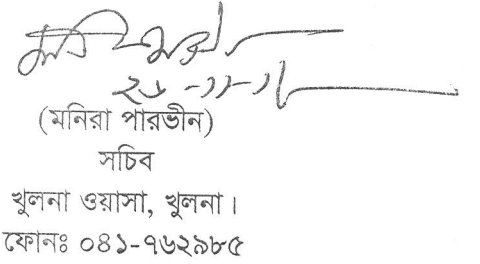 ২৬-১১-১৮
(মনিরা পারভীন)
সচিব
খুলনা ওয়াসা, খুলনা।
ফোনঃ ০৪১-৭৬২৯৮৫